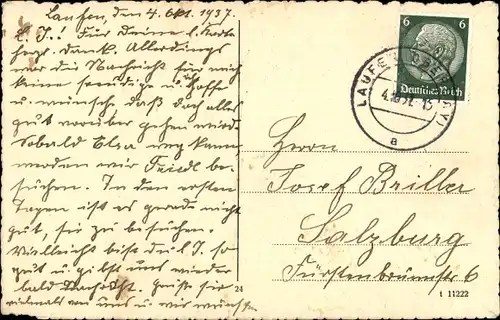 Laufen, den 4. Okt. 1937.
L. J.! Für Deine l. Karte
herzl. Dank. Allerdings
war die Nachricht für mich
keine freudige u. hoffe
u. wünsche, daß doch alles
gut vorüber gehen wird.
Sobald Elsa weg kann,
werden wir Friedl be-
suchen. In den ersten
Tagen ist es gerade nicht
gut, sie zu besuchen.
Vielleicht bist du l. J. so
gut u. gibst uns wieder
bald Nachricht. Grüße sie
vielmals von uns u. wir wünschen
6 6
Deutsches Reich
LAUFEN (OBERBAY)
4.10.37. 13
a
Herrn
Josef Briller
Salzburg
Fürstenbrunnstr 6
24
t 11222